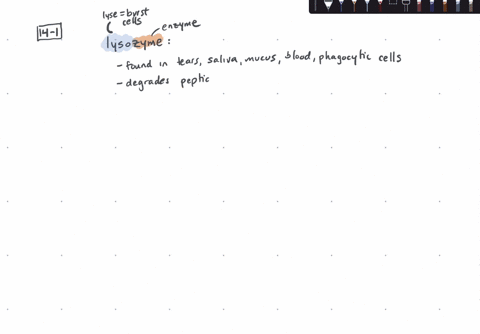 lyse = burst
cells
enzyme
14-1
lysozyme :
- found in tears, saliva, mucus, blood, phagocytic cells
- degrades peptic